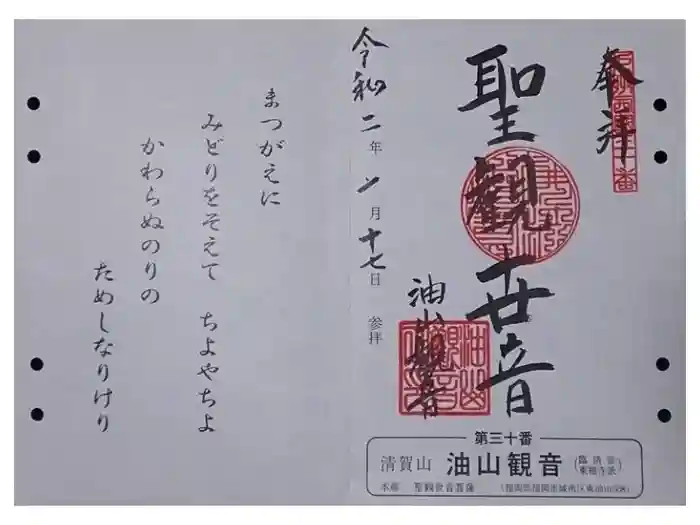 奉拝
聖観世音
油山観音
令和二年八月十七日 参拝
まつがえに
みどりをそえて ちよやちよ
かわらぬのりの
ためしなりけり
第三十番
清賀山 油山観音 (臨済宗 東福寺派)
本尊 聖観世音菩薩